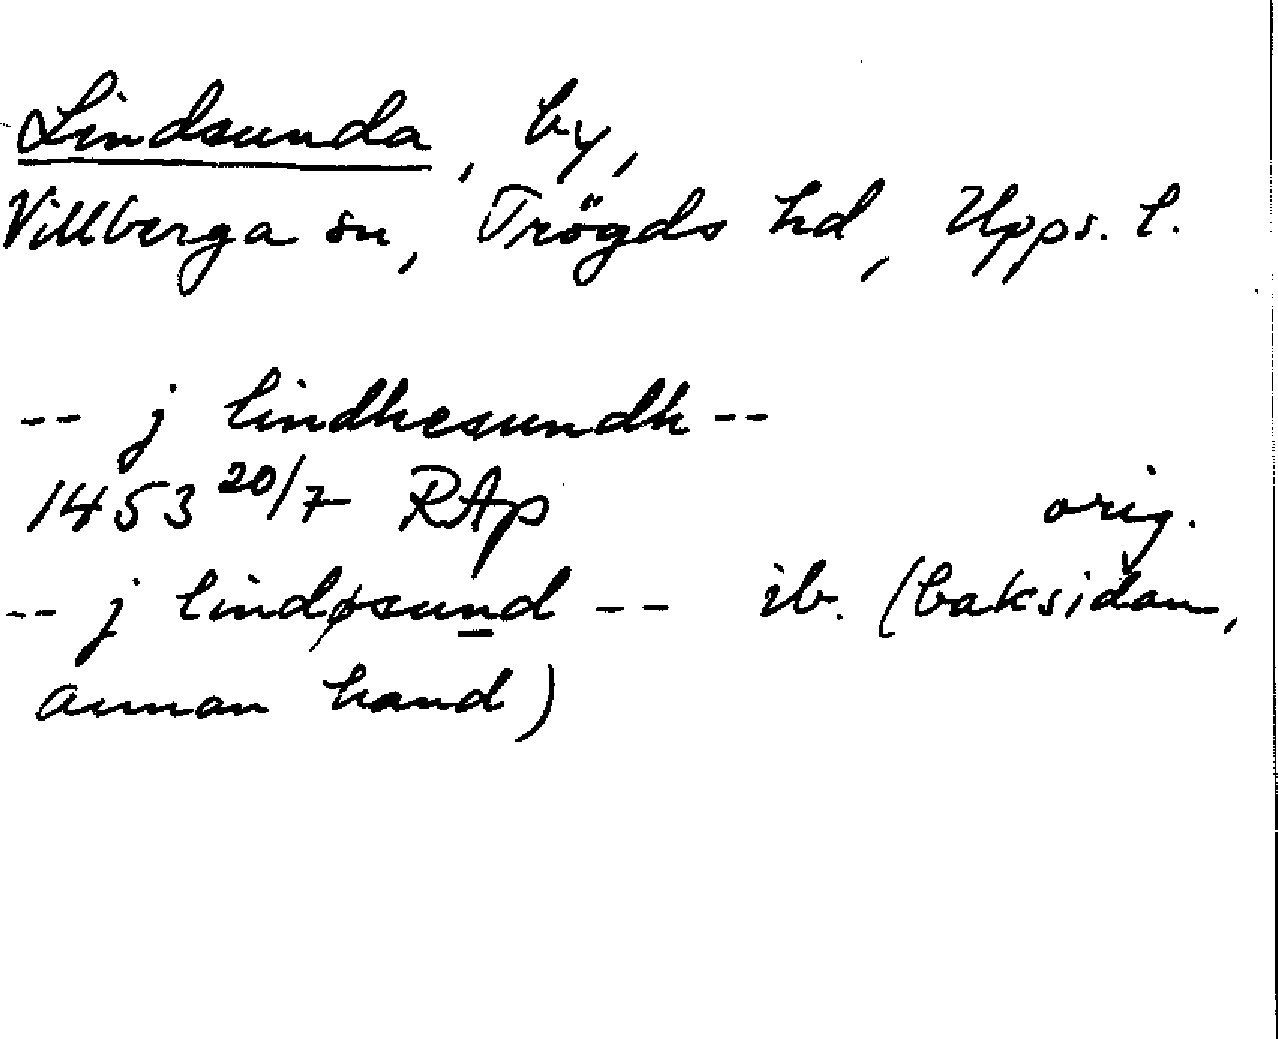 Lindsunda, by,
Villberga sn, Trögds hd, Upps. l.
-- j lindhesundh --
1453 20/7 RAp orig.
-- j lindøsund -- ib. (baksidan,
annan hand)